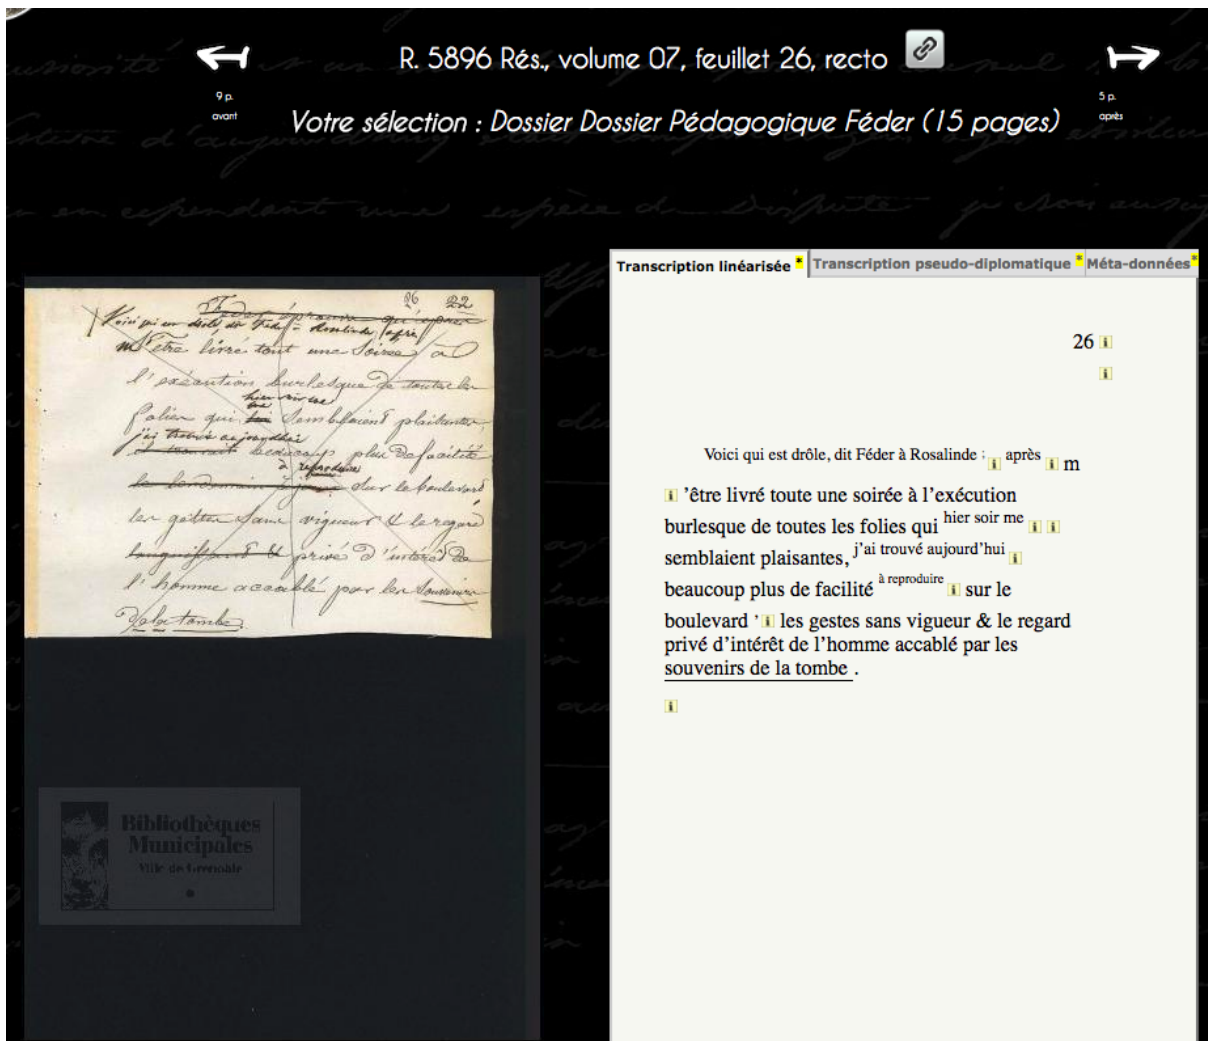 R. 5896 Rés., volume 07, feuillet 26, recto
9 p.
avant
5 p.
après
Votre sélection : Dossier Dossier Pédagogique Féder (15 pages)
26 22
Féder éprouva qu'après
Voici qui est drôle, dit Féder à Rosalinde ; après
m s'être livré tout une soirée à
l'exécution burlesque de toutes les
hier soir me
folies qui lui semblaient plaisantes,
j'ai trouvé aujourd'hui
il trouvait beaucoup plus de facilité
à reproduire
le lendemain à sur le boulevard
les gestes sans vigueur & le regard
languissant & privé d'intérêt de
l'homme accablé par les souvenirs
de la tombe.
Bibliothèques
Municipales
Ville de Grenoble
Transcription linéarisée * Transcription pseudo-diplomatique * Méta-données *
26
Voici qui est drôle, dit Féder à Rosalinde ; après m
'être livré toute une soirée à l'exécution
burlesque de toutes les folies qui hier soir me
semblaient plaisantes, j'ai trouvé aujourd'hui
beaucoup plus de facilité à reproduire sur le
boulevard ' les gestes sans vigueur & le regard
privé d'intérêt de l'homme accablé par les
souvenirs de la tombe .